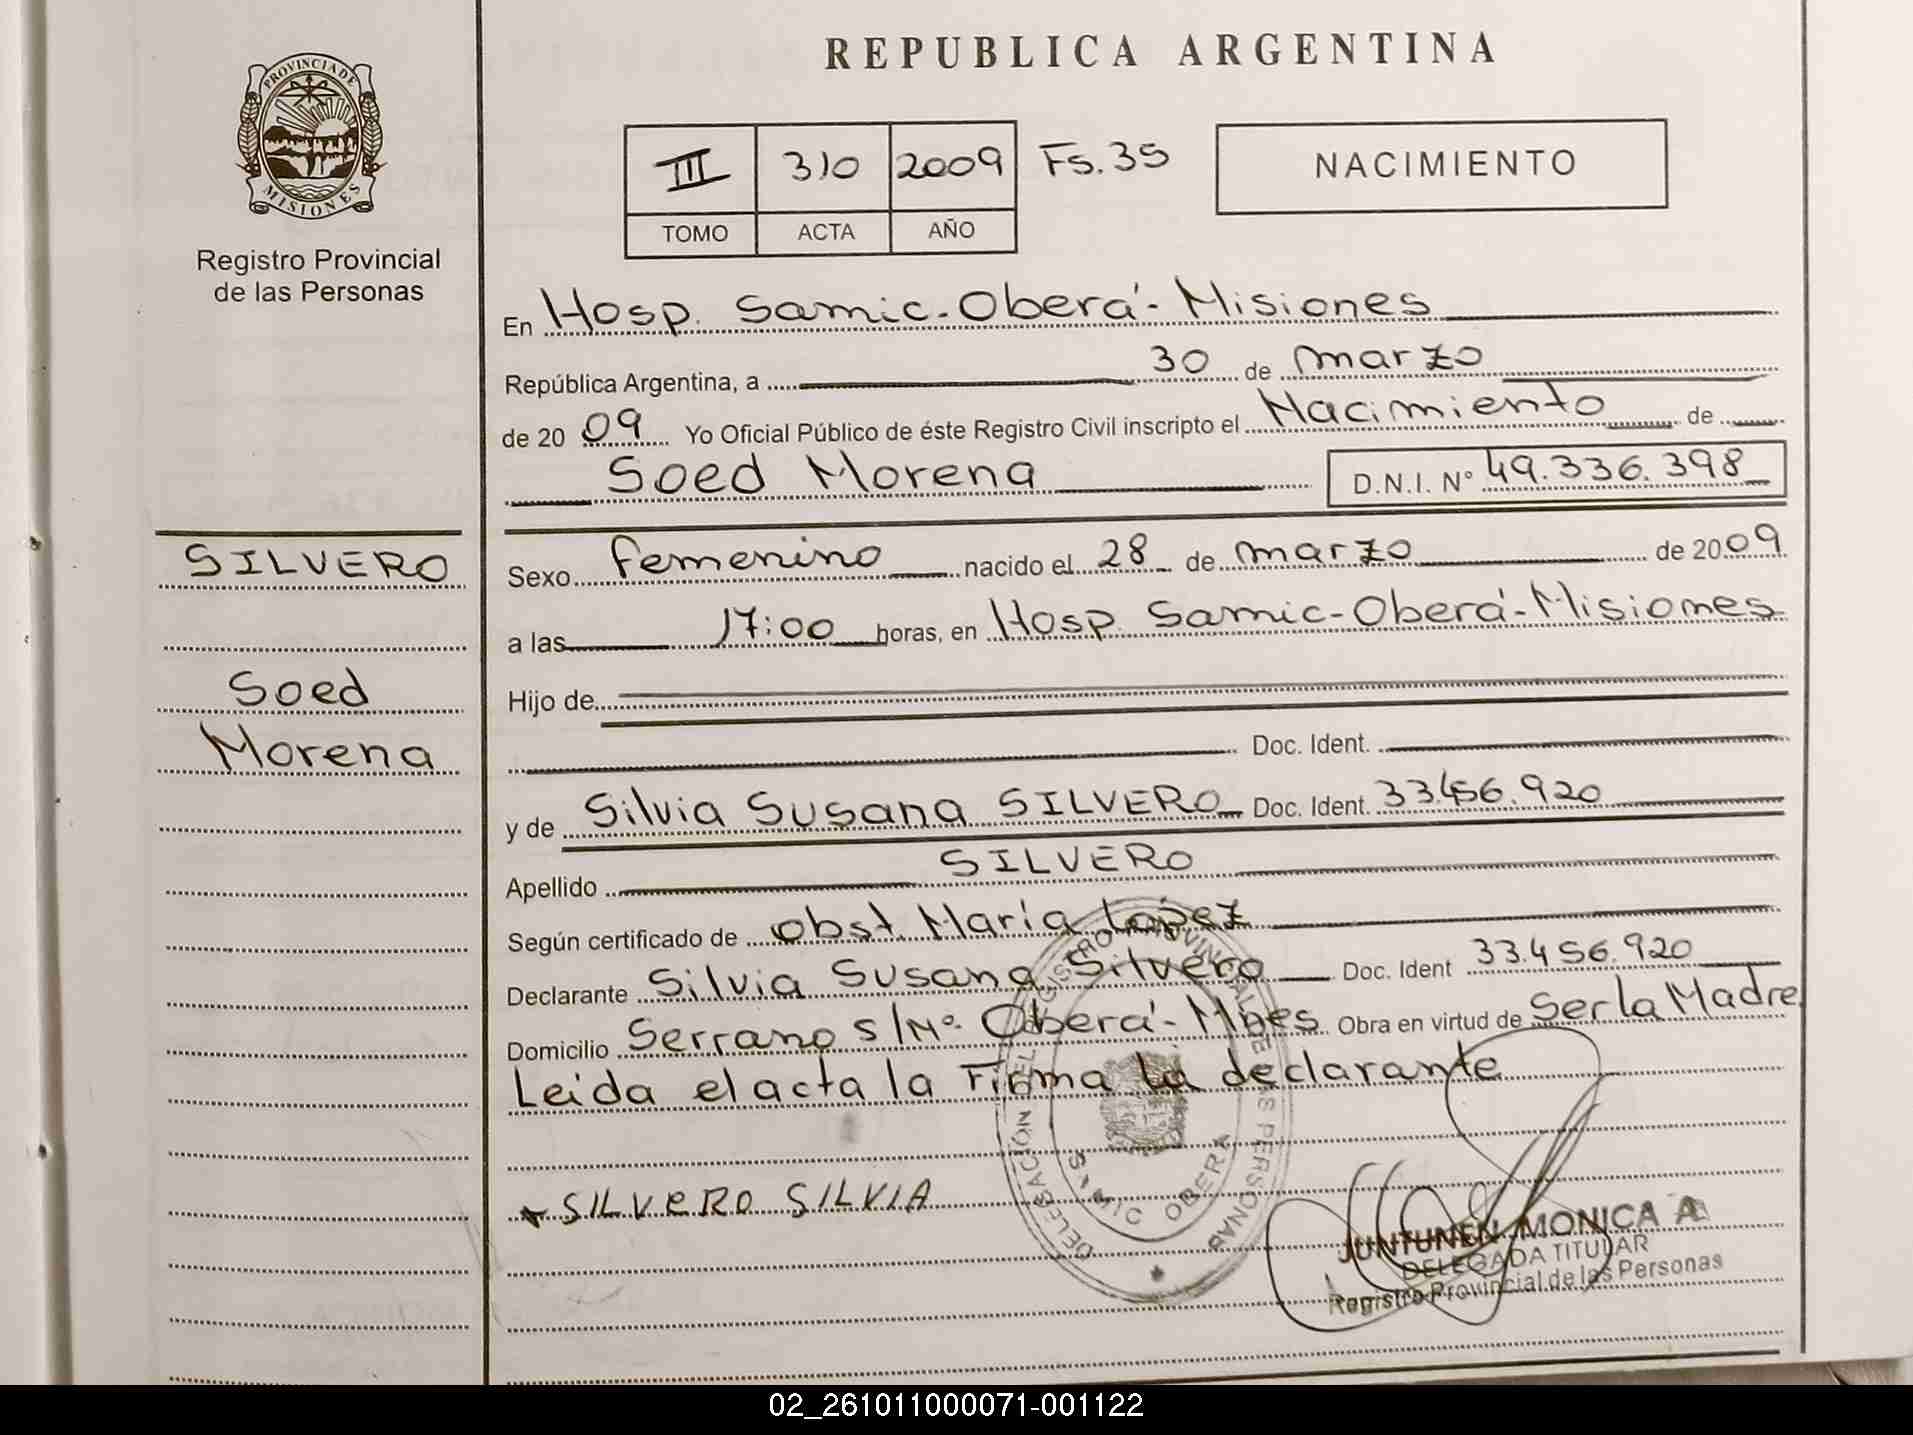 REPUBLICA ARGENTINA
PROVINCIA DE
MISIONES
Registro Provincial
de las Personas
III 310 2009 Fs. 35
TOMO ACTA AÑO
NACIMIENTO
En Hosp. Samic-Oberá-Misiones
República Argentina, a 30 de marzo
de 2009 Yo Oficial Público de éste Registro Civil inscripto el Nacimiento de
Soed Morena D.N.I. Nº 49.336.398
SILVERO
Soed
Morena
Sexo femenino nacido el 28 de marzo de 2009
a las 17:00 horas, en Hosp. Samic-Oberá-Misiones
Hijo de
Doc. Ident.
y de Silvia Susana SILVERO Doc. Ident. 33.456.920
Apellido SILVERO
Según certificado de obst. María Lopez
Declarante Silvia Susana Silvero Doc. Ident 33.456.920
Domicilio Serrano S/Nº Oberá-Mnes Obra en virtud de Ser la Madre
Leida el acta la Firma la declarante
SILVERO SILVIA
DELEGACIÓN DEL REGISTRO PROVINCIAL DE LAS PERSONAS
SAMIC OBERA
JUNTUNEN MONICA A
DELEGADA TITULAR
Registro Provincial de las Personas
02_261011000071-001122